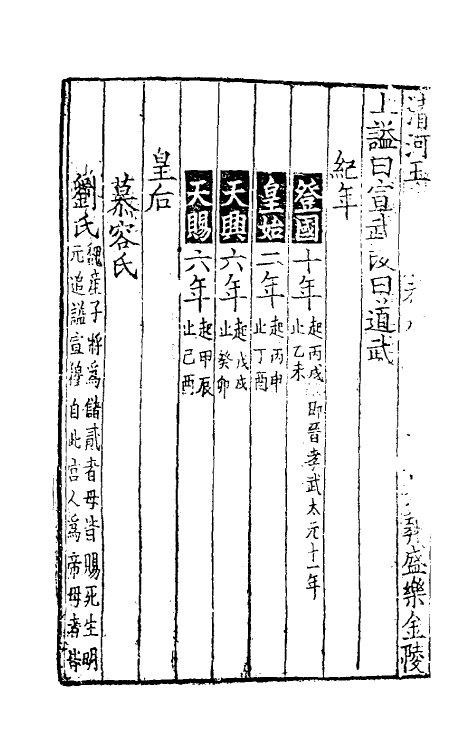 清河王
葬盛樂金陵
上諡曰宣武改曰道武
紀年
登國十年起丙戌即晉孝武太元十一年
止乙未
皇始二年起丙申
止丁酉
天興六年起戊戌
止癸卯
天賜六年起甲辰
止己酉
皇后
慕容氏
劉氏魏産子將爲儲貳者母皆賜死生明
元追諡宣穆自此宫人爲帝母者皆